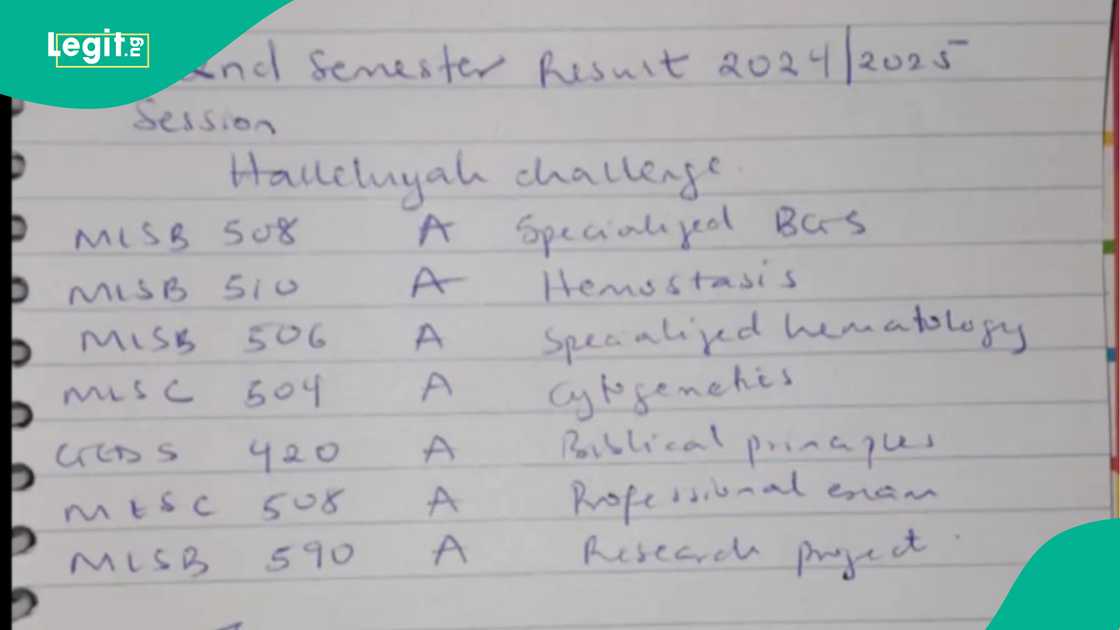 Legit.ng
2nd Semester Result 2024/2025
Session
Halleluyah challenge.
MLSB 508 A Specialized BGS
MLSB 510 A Hemostasis
MLSB 506 A Specialized hematology
MLSC 504 A Cytogenetics
GEDS 420 A Biblical principles
MLSC 508 A Professional exam
MLSB 590 A Research project.